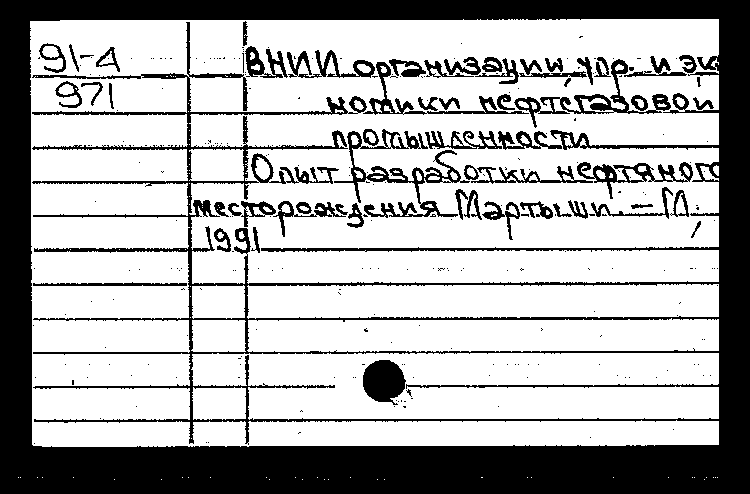 91-4
971
ВНИИ организации, упр. и эк
номики нефтегазовой
промышленности
Опыт разработки нефтяног
месторождения Мартыши. – М.,
1991